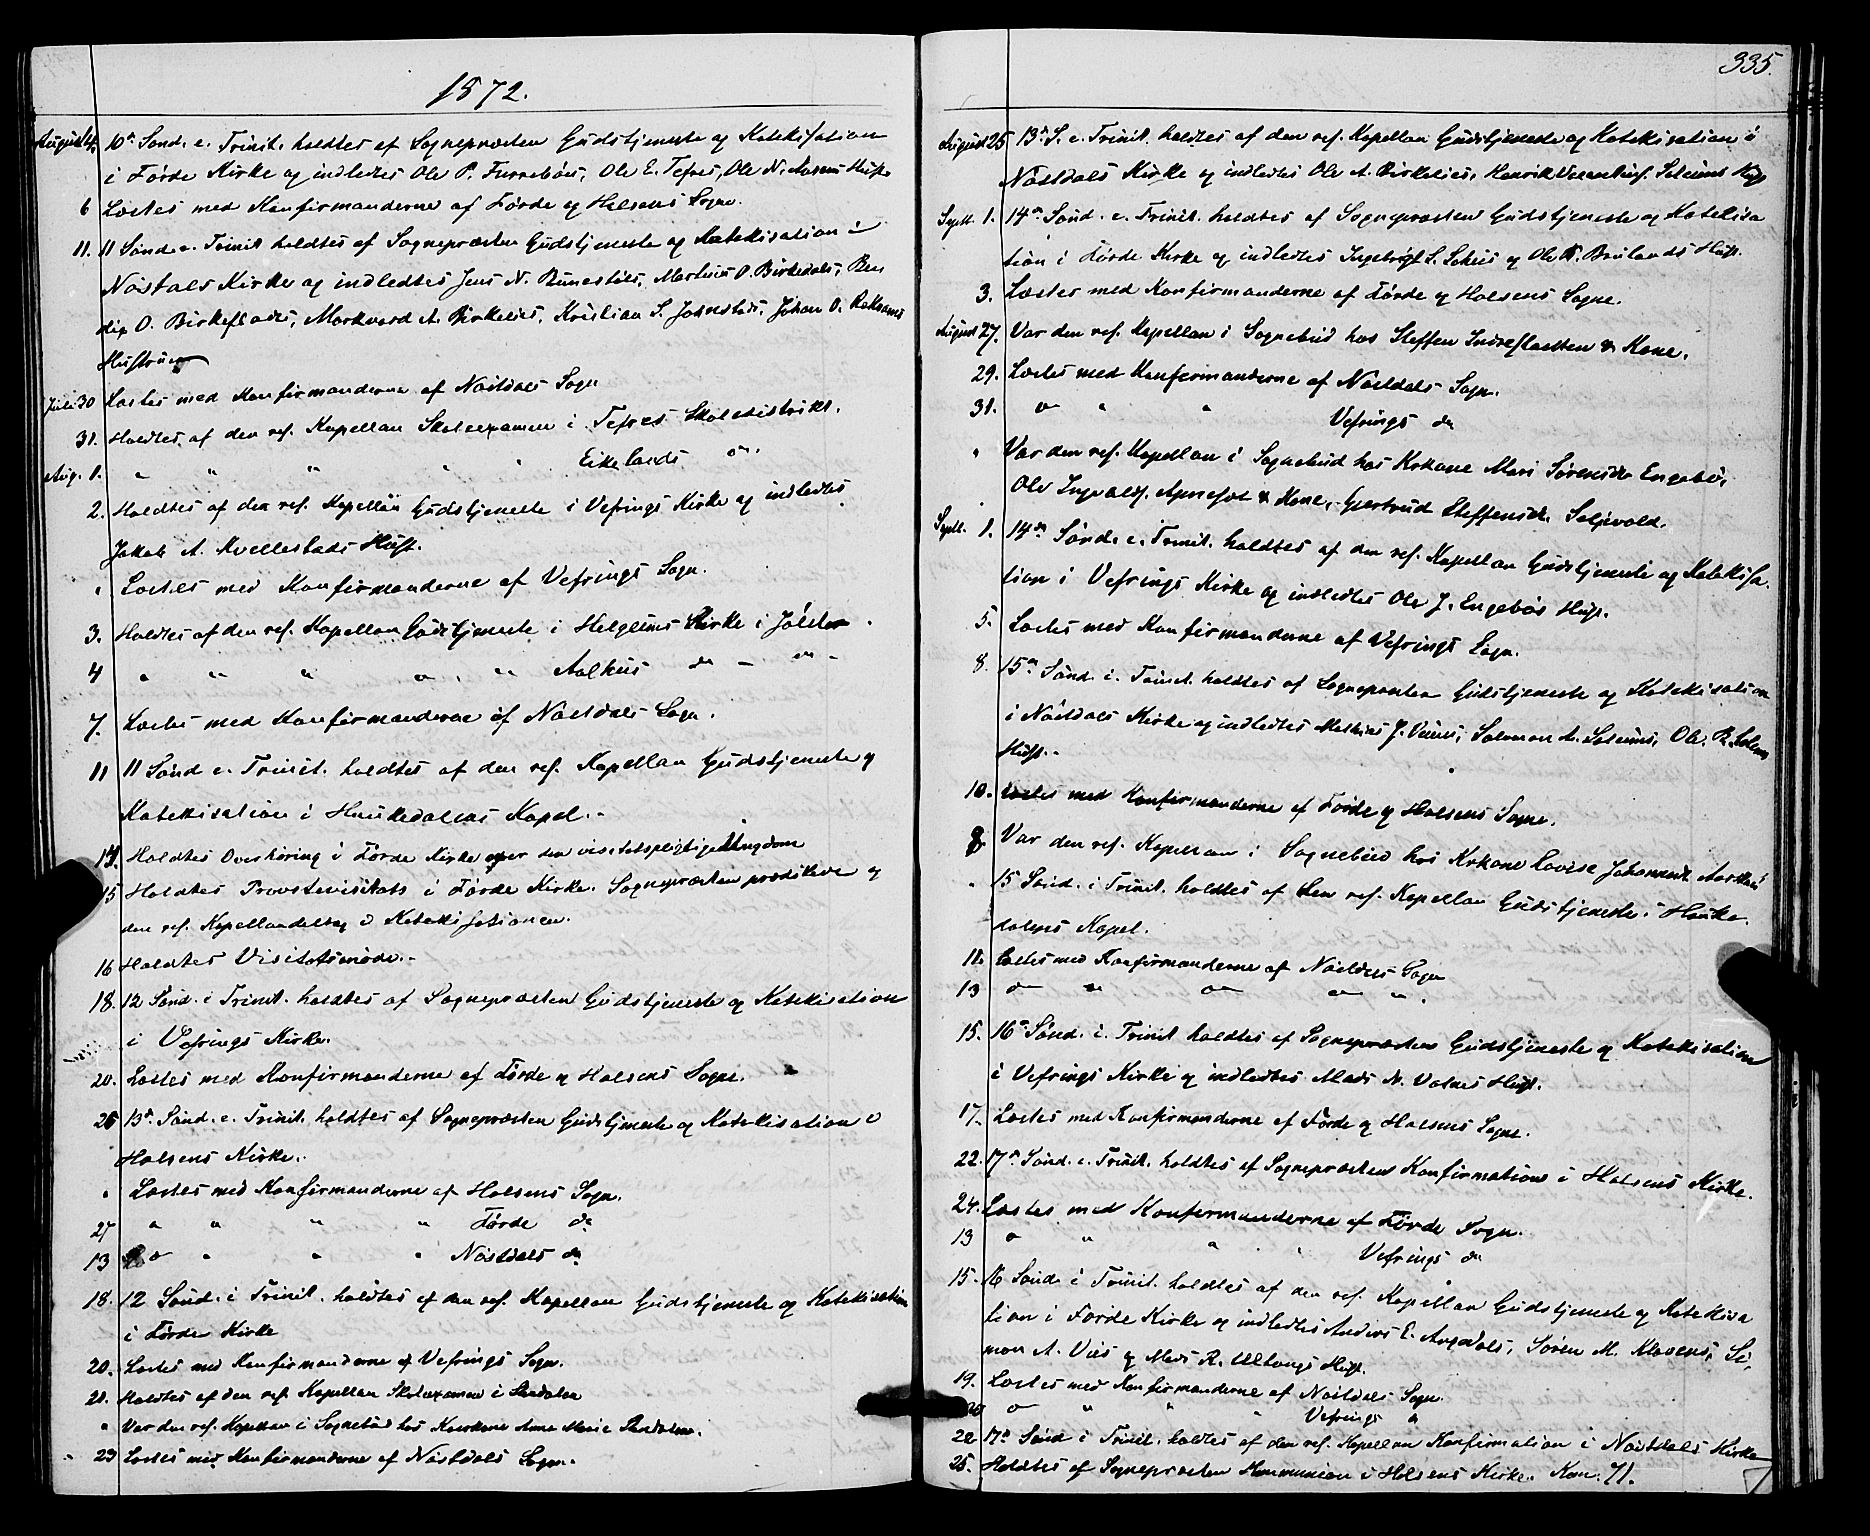 1872.
August 4. 10de Sønd. e. Trinit. holdtes af Sognepræsten Gudstjeneste og Katekisation
i Førde Kirke og indledtes Ole P. Furrebøes, Ole E. Tefres, Ole N. Aasens Hustr.
6 Læstes med Konfirmanderne af Førde og Holsens Sogne.
11. 11 Sønd. e. Trinit. holdtes af Sognepræsten Gudstjeneste og Katekisation i
Nøstdals Kirke og indledtes Jens N. Bunestøls, Martinus O. Birkedals, Ben
dix O. Birkeflodts, Markvard A. Birkelies, Kristian S. Johnstads, Johan O.
Hustruer
Juli 30 Læstes med Konfirmanderne af Nøstdals Sogn
31. Holdtes af den res. Kapellan Skoleexamen i Tefres Skoledistrikt.
Aug. 1. " " " " " Eikelands do.
2. Holdtes af den res. Kapellan Gudstjeneste i Vefrings Kirke og indledtes
Jakob A. Kvellestads Hust.
" Læstes med Konfirmanderne af Vefrings Sogn.
3. Holdtes af den res. Kapellan Gudstjeneste i Helgeims Kirke i Jølster.
4 " " " " " Aalhus do – do –
7. Læstes med Konfirmanderne af Nøstdals Sogn.
11 11 Sønd e. Trinit. holdtes af den res. Kapellan Gudstjeneste og
Katekisation i Haukedalens Kapel.-
14. Holdtes Overhøring i Førde Kirke over den visitatspligtige Ungdom
15 Holdtes Provstevisitats i Førde Kirke. Sognepræsten prædikede og
den res. Kapellan deltog i Katekisationen.
16 Holdtes Visitatsmøde.-
18. 12 Sønd. i Trinit. holdtes af Sognepræsten Gudstjeneste og Katekisation
i Vefrings Kirke.
20. Læstes med Konfirmanderne af Førde og Holsens Sogne.
25 13de Sønd. e. Trinit. holdtes af Sognepræsten Gudstjeneste og Katekisation i
Holsens Kirke.
" Læstes med Konfirmanderne af Holsens Sogn.
27 " " " " Førde do
13 " " " Nøstdals do
18. 12 Sønd. i Trinit. holdtes af den res. Kapellan Gudstjeneste og Katekisation
i Førde Kirke
20. Læstes med Konfirmanderne af Vefrings Sogn.
21. Holdtes af den res. Kapellan Skoleexamen i
" Var den res. Kapellan i Sognebud hos Anne Marie
29 Læstes med Konfirmanderne af Nøstdals Sogn.
335.
August 25 13de S. e. Trinit. holdtes af den res. Kapellan Gudstjeneste og Katekisation i
Nøstdals Kirke og indledtes Ole A. Birkelies, Henrik Soleims Hust
Septt. 1. 14de Sønd. e. Trinit. holdtes af Sognepræsten Gudstjeneste og Katekisa
tion i Førde Kirke og indledtes S. og Ole Brulands Hust.
3. Læstes med Konfirmanderne af Førde og Holsens Sogne.
August 27. Var den res. Kapellan i Sognebud hos Steffen Indreflaatten & Kone.
29. Læstes med Konfirmanderne af Nøstdals Sogn.
31. " " " Vefrings do
" Var den res. Kapellan i Sognebud hos Kone Mari Sørensdr Engebø,
Ole & Kone, Gjertrud Steffensdr. Seljevold.
Septt. 1. 14de Sønd. e. Trinit. holdtes af den res. Kapellan Gudstjeneste og Katekisa-
tion i Vefrings Kirke og indledtes Ole J. Engebøs Hust.
5. Læstes med Konfirmanderne af Vefrings Sogn.
8. 15de Sønd. i. Trinit. holdtes af Sognepræsten Gudstjeneste og Katekisation
i Nøstdals Kirke og indledtes Mathias J. Salomon A. Soleims, Ole
Hust.-
10. Læstes med Konfirmanderne af Førde og Holsens Sogne.
8. Var den res. Kapellan i Sognebud hos Kone Lovise Johannesd.
" 15 Sønd. i Trinit. holdtes af den res. Kapellan Gudstjeneste i Hauke
dalens Kapel.
11. Læstes med Konfirmanderne af Nøstdals Sogn
13 " " " " "
15. 16de Sønd. i. Trinit holdtes af Sognepræsten Gudstjeneste og Katekisation
i Vefrings Kirke og indledtes Mads N. Valnes Hust.
17. Læstes med Konfirmanderne af Førde og Holsens Sogne.
22. 17de Sønd. e. Trinit. holdtes af Sognepræsten Konfirmation i Holsens Kirke.
24. Læstes med Konfirmanderne af Førde Sogn.
13 " " " " Vefrings do
15. 16 Sønd. i Trinit. holdtes af den res. Kapellan Gudstjeneste og Katekisa
tion i Førde Kirke og indledtes Anders E. Angedals, Søren M. Si-
mon A. Vies og Mads R. Ultangs Hust.
19. Læstes med Konfirmanderne af Nøstdals Sogn
20 " " " " Vefrings "
22 17de Sønd i Trinit. holdtes af den res. Kapellan Konfirmation i Nøstdals Kirke
25. Holdtes af Sognepræsten Kommunion i Holsens Kirke. Kom. 71.